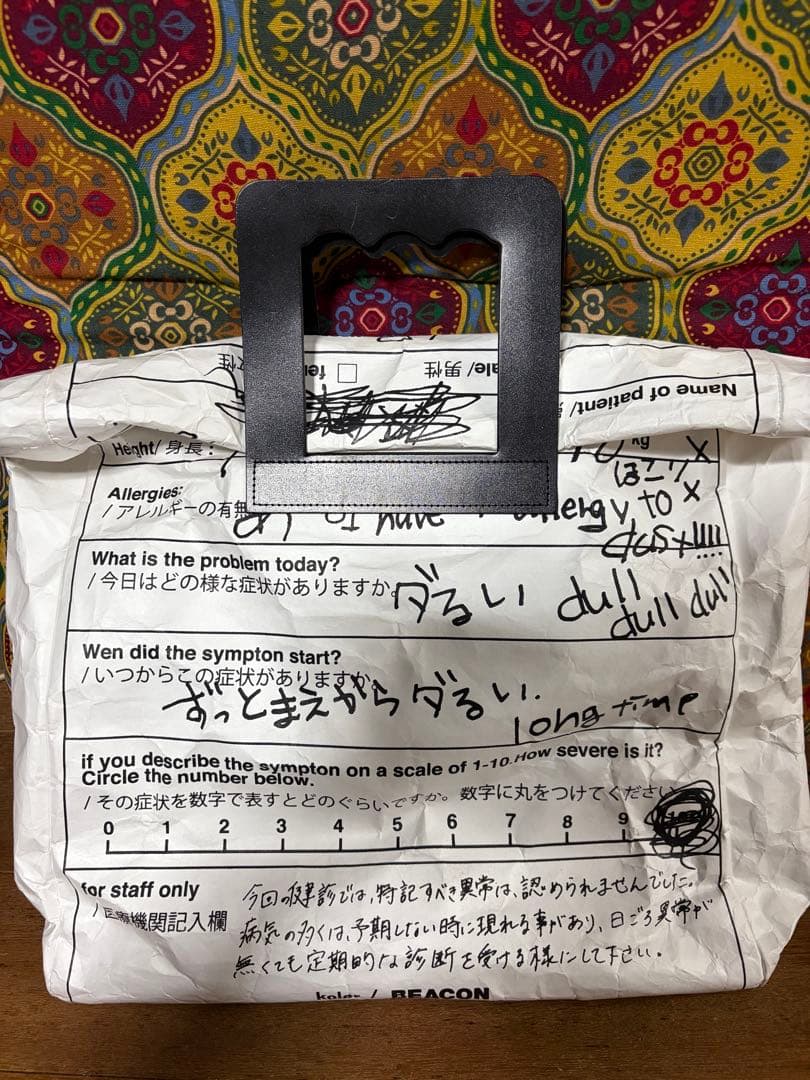 Name of patient/
ale/ 男性
fe
Height/ 身長 :
kg
x
ほこり
Allergies:
/ アレルギーの有無
I have
allergy to x
dust!!!!
What is the problem today?
/ 今日はどの様な症状がありますか。
ダるい dull
dull dull
Wen did the sympton start?
/ いつからこの症状がありますか
ずっとまえからダるい.
long time
if you describe the sympton on a scale of 1-10.How severe is it?
Circle the number below.
/ その症状を数字で表すとどのぐらいですか。数字に丸をつけてください
0 1 2 3 4 5 6 7 8 9
for staff only
/ 医療機関記入欄
今回の健診では、特記すべき異常は、認められませんでした。
病気の多くは、予期しない時に現れる事があり、日ごろ異常が
無くても定期的な診断を受ける様にして下さい。
kolor / BEACON